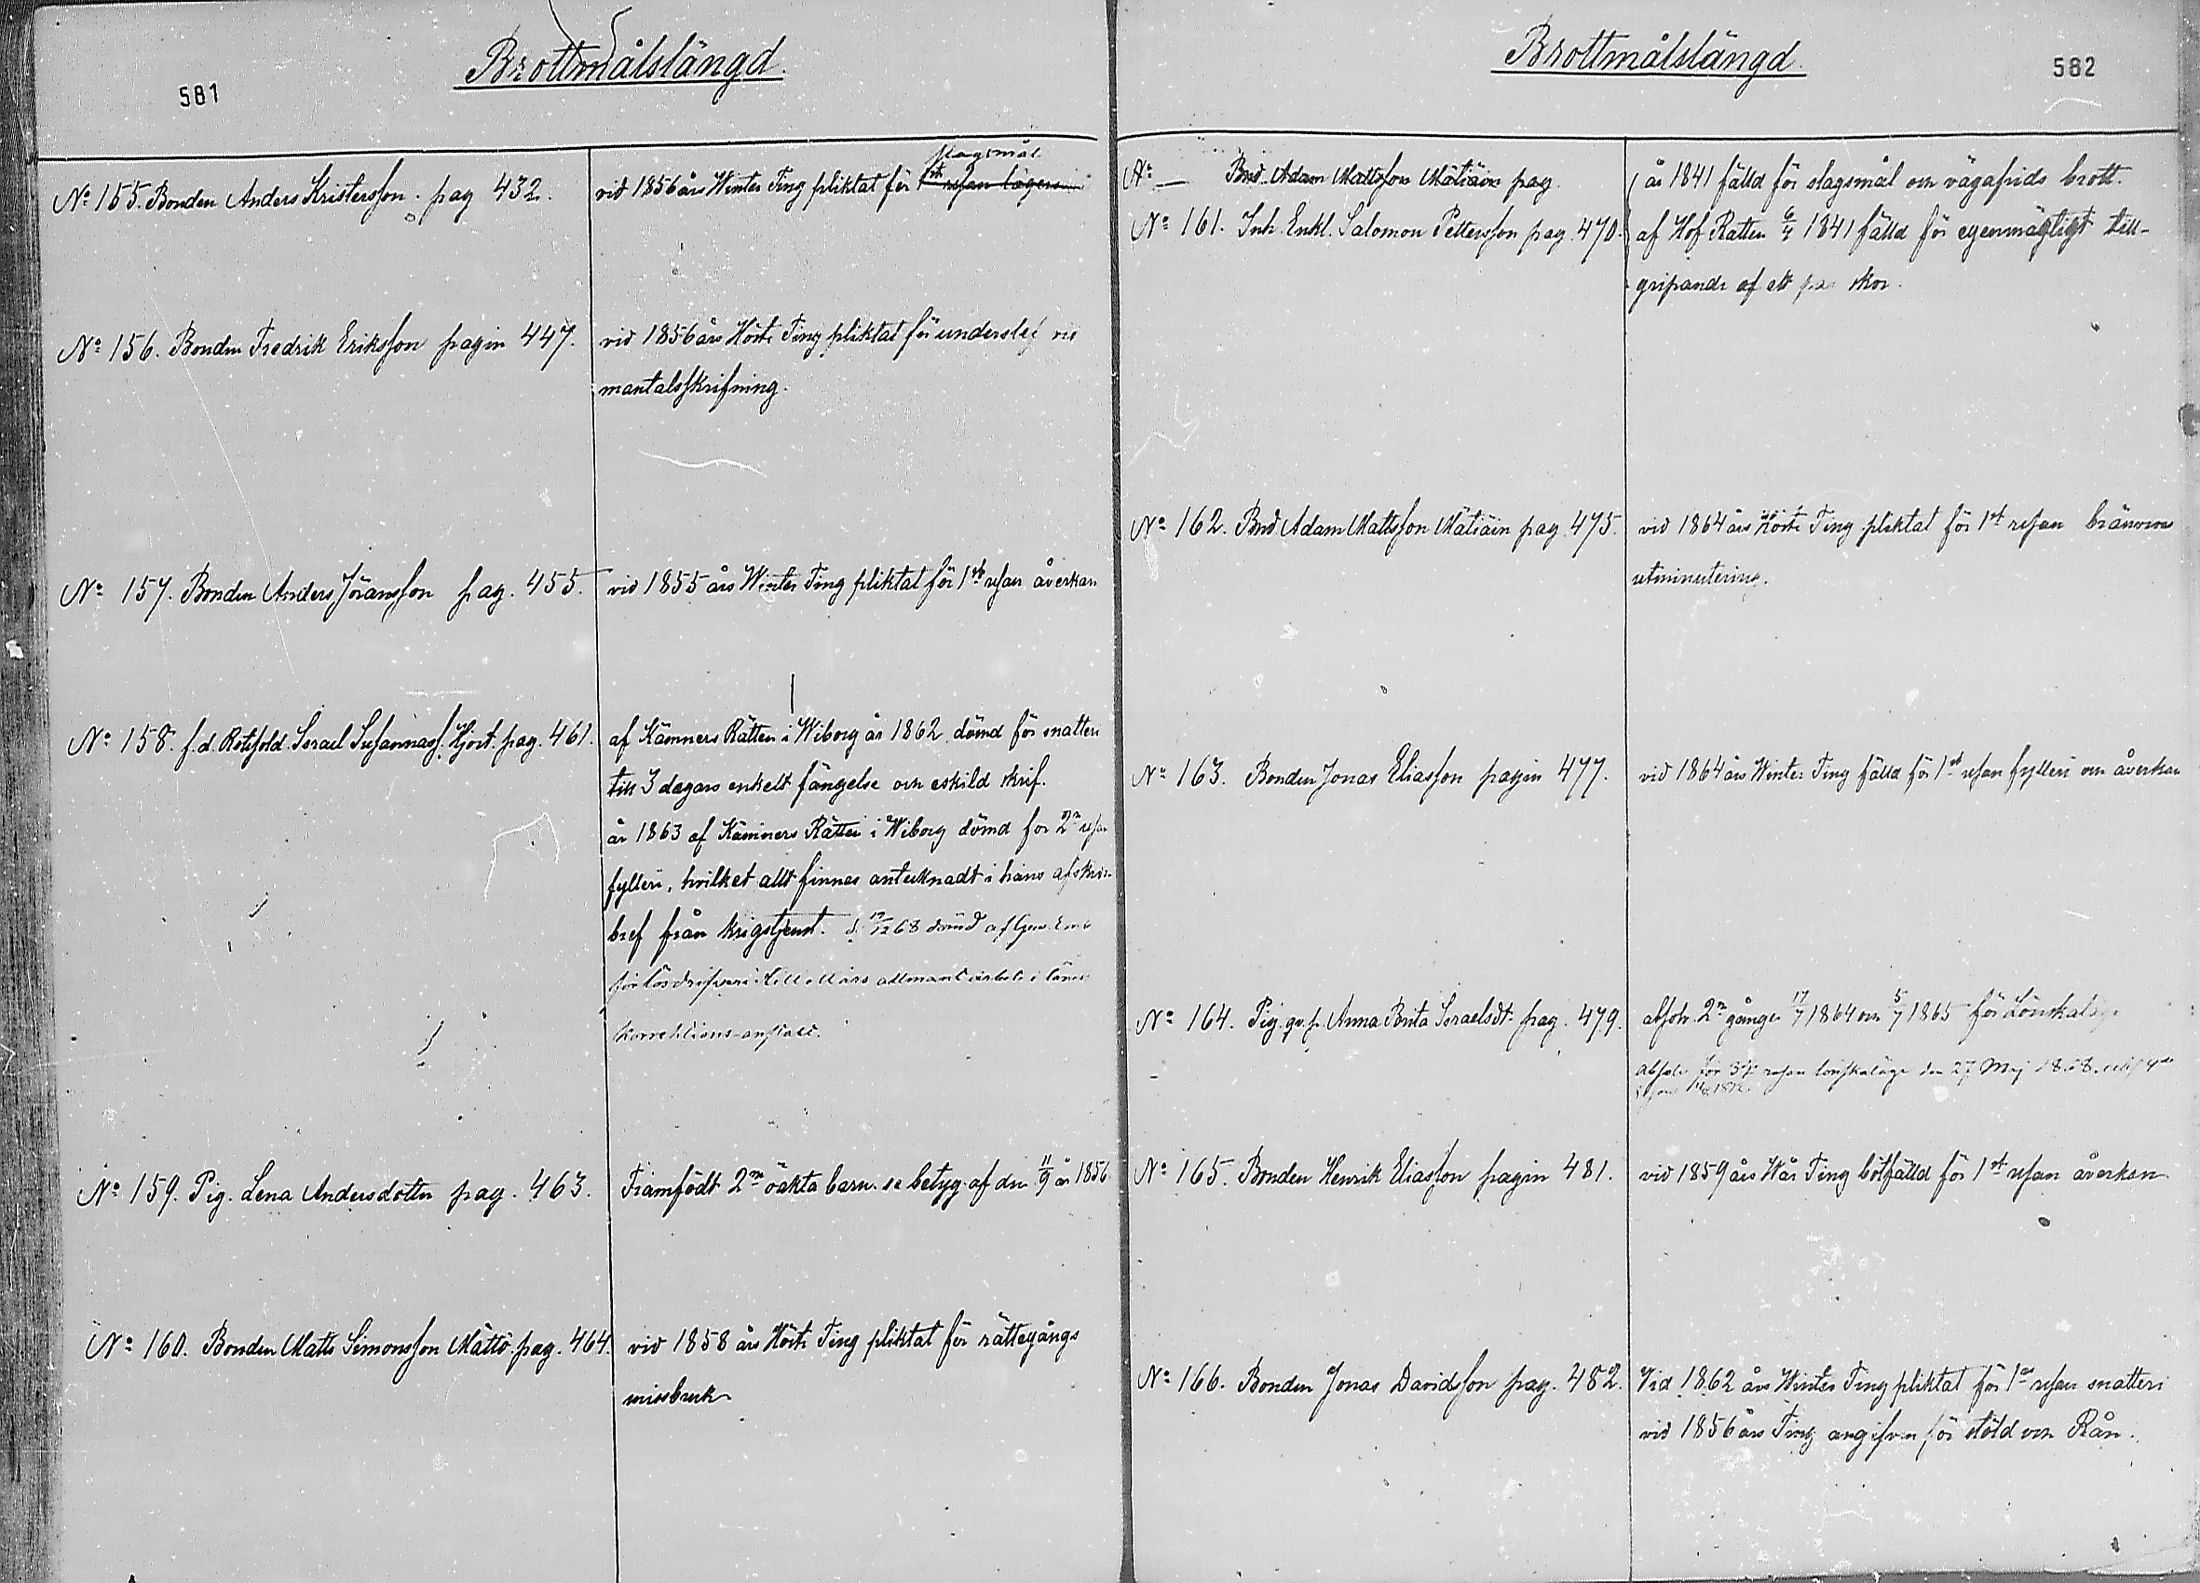 581
Brottmålslängd.
No 155. Bonden Anders Kristersson. pag 432.
vid 1856 års Winter Ting pliktat för 1sta resan lägersm
slagsmål
No 156. Bonden Fredrik Eriksson pagin 447.
vid 1856 års Höste Ting pliktat för underslef vid
mantalsskrifning.
No 157. Bonden Anders Jöransson pag. 455.
vid 1855 års Winter Ting pliktat för 1sta resan åverkan
No 158. f.d. Rotesold. Israel Susannass. Hjort. pag. 461.
af Kämners Rätten i Wiborg år 1862 dömd för snatteri
till 3 dagars enkelt fängelse och eskild skrif.
år 1863 af Kämners Rätten i Wiborg dömd for 2n resan
fylleri, hvilket allt finnes antecknadt i hans afskeds
bref från krigstjenst. d. 12/68 dömd af Guv. Emb
för lösdrifveri till allmänt arbete i läns
korrektions-anstalt.
No 159. Pig. Lena Andersdotter pag. 463.
Framfödt 2ne oäkta barn. se betyg af den 11/9 år 1856
No 160. Bonden Matts Simonsson Mättö pag. 464.
vid 1858 års Höste Ting pliktat för rättegångs
missbruk
582
Brottmålslängd.
No — Bnd. Adam Mattsson Mätiäin pag.
år 1841 fälld för slagsmål och vägafrids brott.
No 161. Inh. Enkl. Salomon Pettersson pag. 470.
af Hof Rätten 6/4 1841 fälld för egenmägtigt till-
gripande af ett par skor.
No 162. Bnd Adam Mattsson Mätiäin pag. 475.
vid 1864 års Höste Ting pliktat för 1sta resan bränvins
utminutering.
No 163. Bonden Jonas Eliasson pagin 477.
vid 1864 års Winter Ting fälld för 1sta resan fylleri och åverkan
No 164. Pig. qv. p. Anna Brita Israelsdt. pag. 479.
absolv. 2ne gånger 17/7 1864 och 5/7 1865 för Lönskaläge
absolv. för 3dje resan lönskaläge den 27 Maj 1868.
No 165. Bonden Henrik Eliasson pagin 481.
vid 1859 års Wår Ting bötfälld för 1sta resan åverkan.
No 166. Bonden Jonas Davidsson pag. 482.
Vid 1862 års Winter Ting pliktat för 1a resan snatteri
vid 1856 års Ting angifven för stöld och Rån.